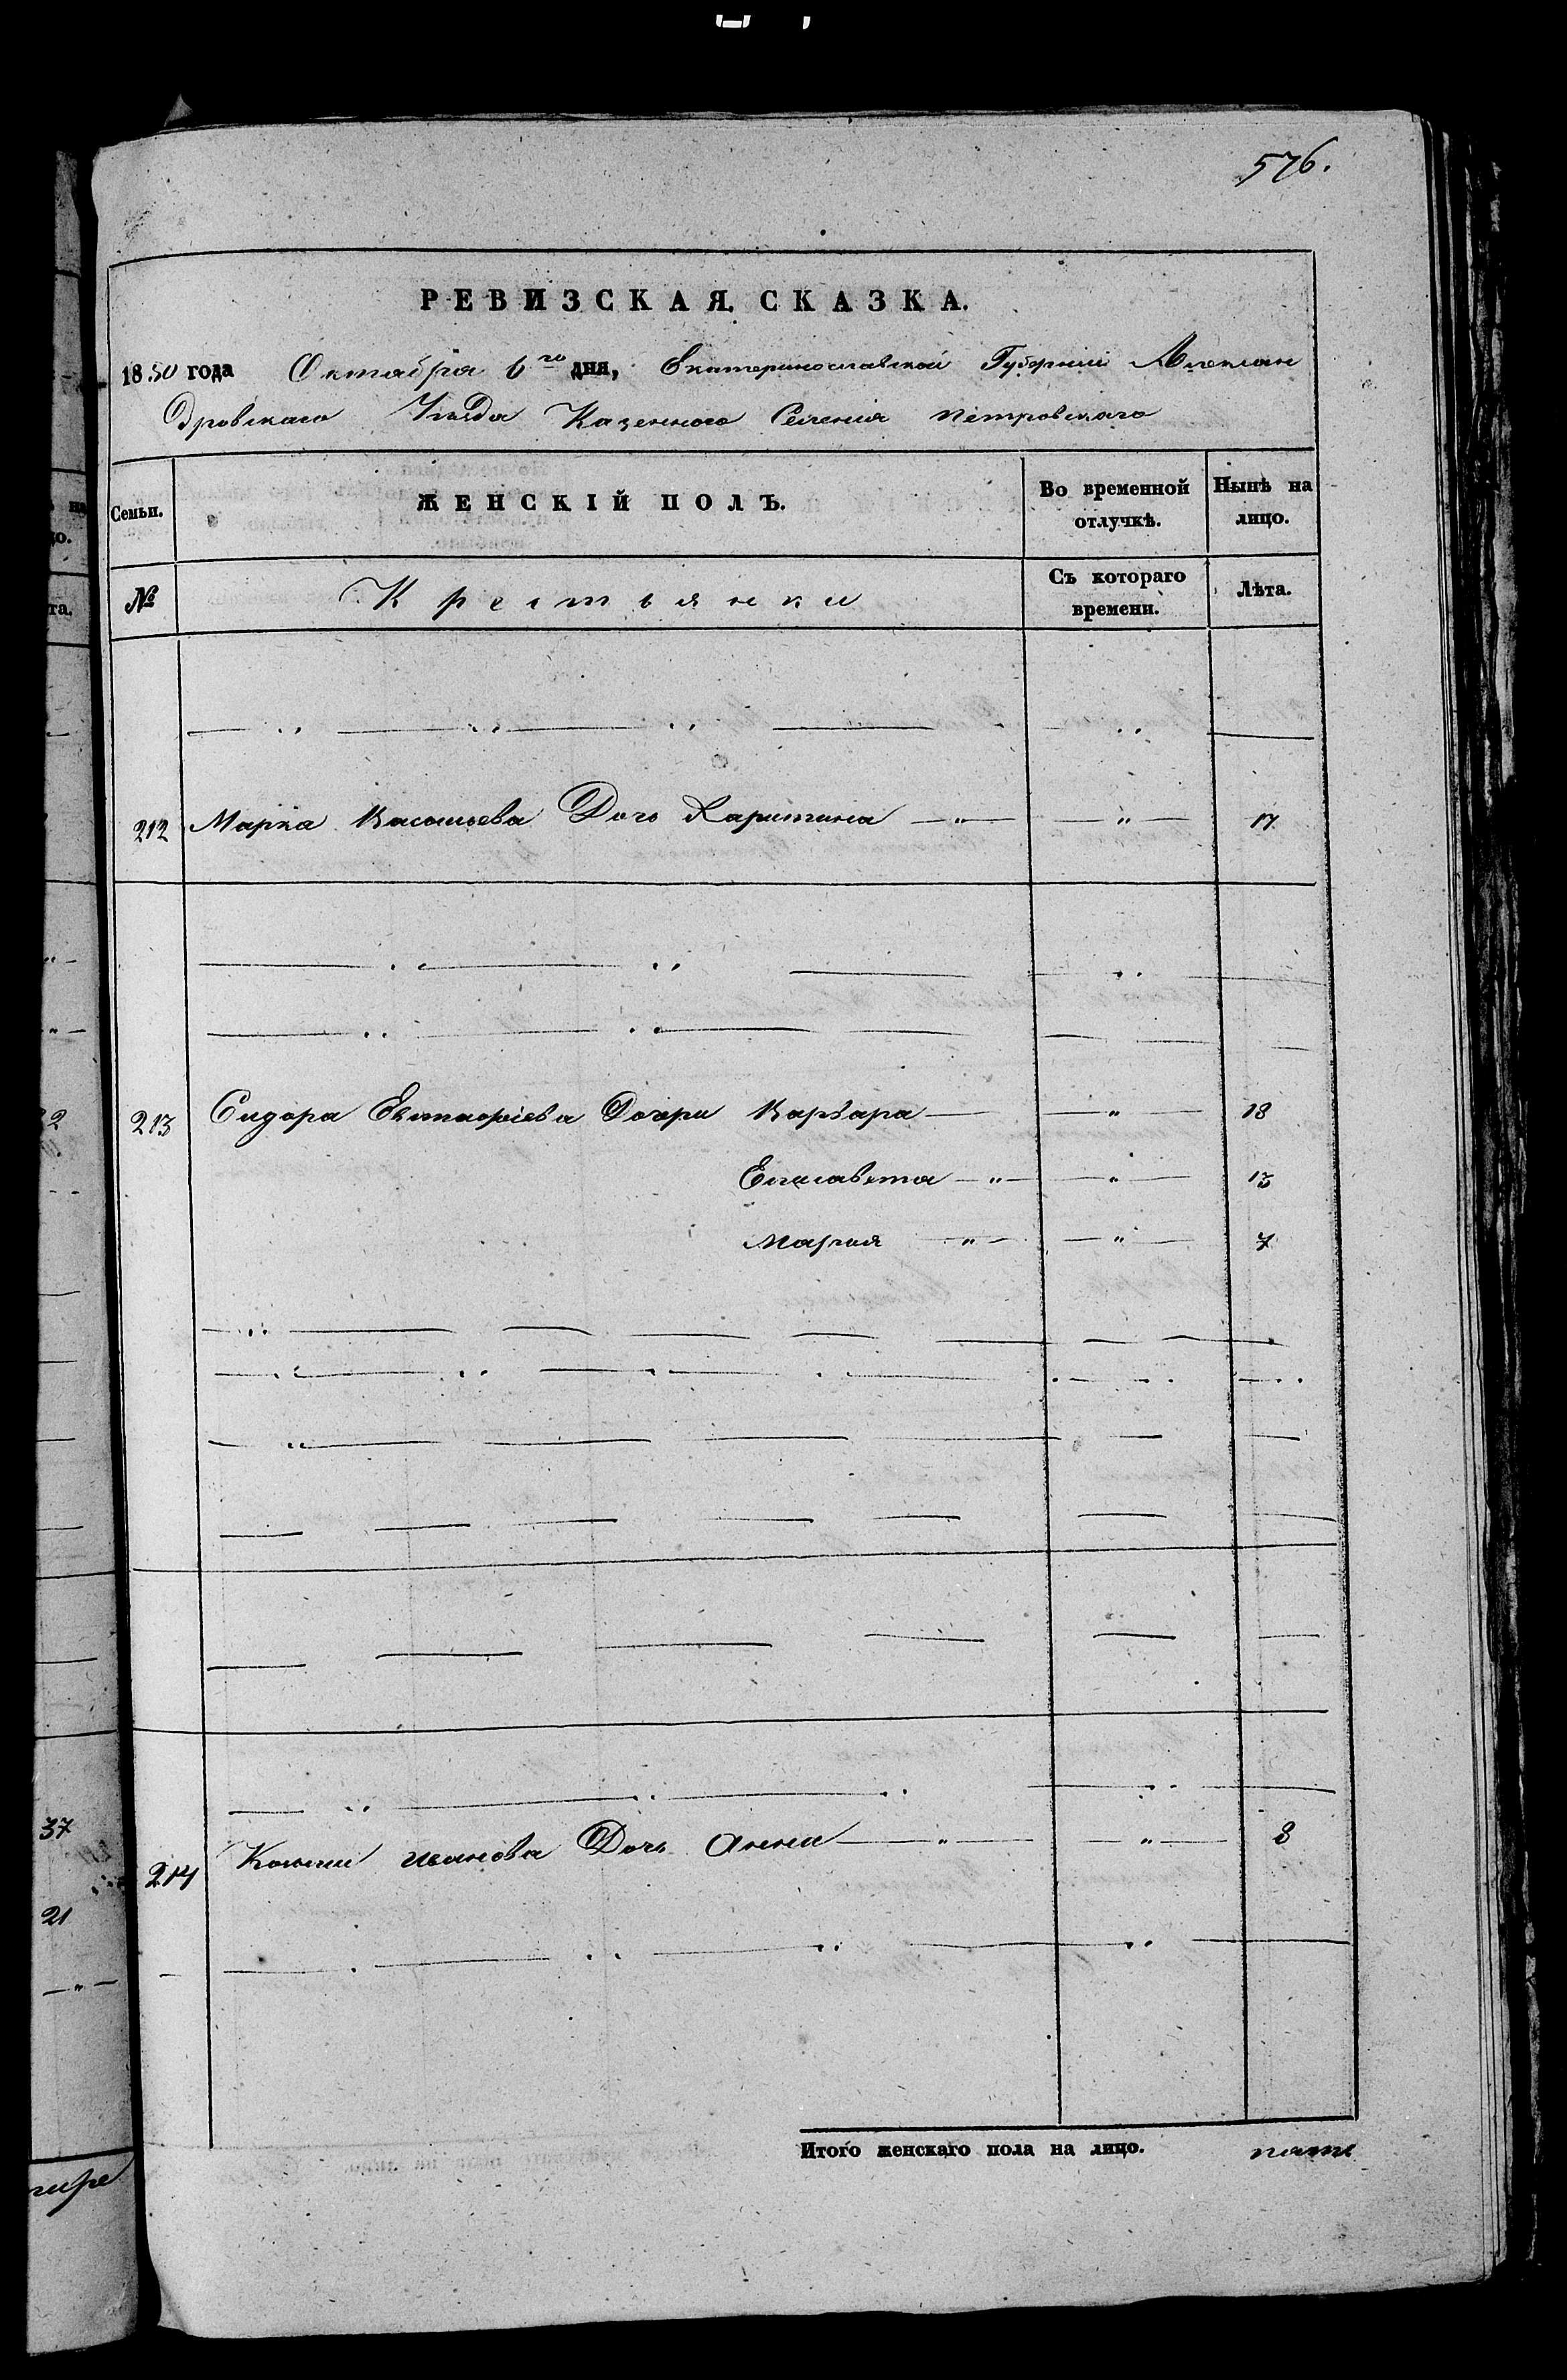 576.
РЕВИЗСКАЯ СКАЗКА.
1850 года Октября 6го дня, Екатеринославской Губернии Алексан
дровскаго Уѣзда Казенного Селения Петровскаго
Семьи. ЖЕНСКІЙ ПОЛЪ. Во временной отлучкѣ. Нынѣ на лицо.
№ Крестьянки Съ котораго времени. Лѣта.
212 Марка Васильева Дочь Харитина — " — — " — 17
213 Сидора Евстафіева Дочери Варвара — — " — 18
Елисавета — " — — " — 13
Мария — " — — " — 7
214 Иванова Дочь Анна — " — — " — 8
Итого женскаго пола на лицо. пять
на
го.
та.
2
37
21